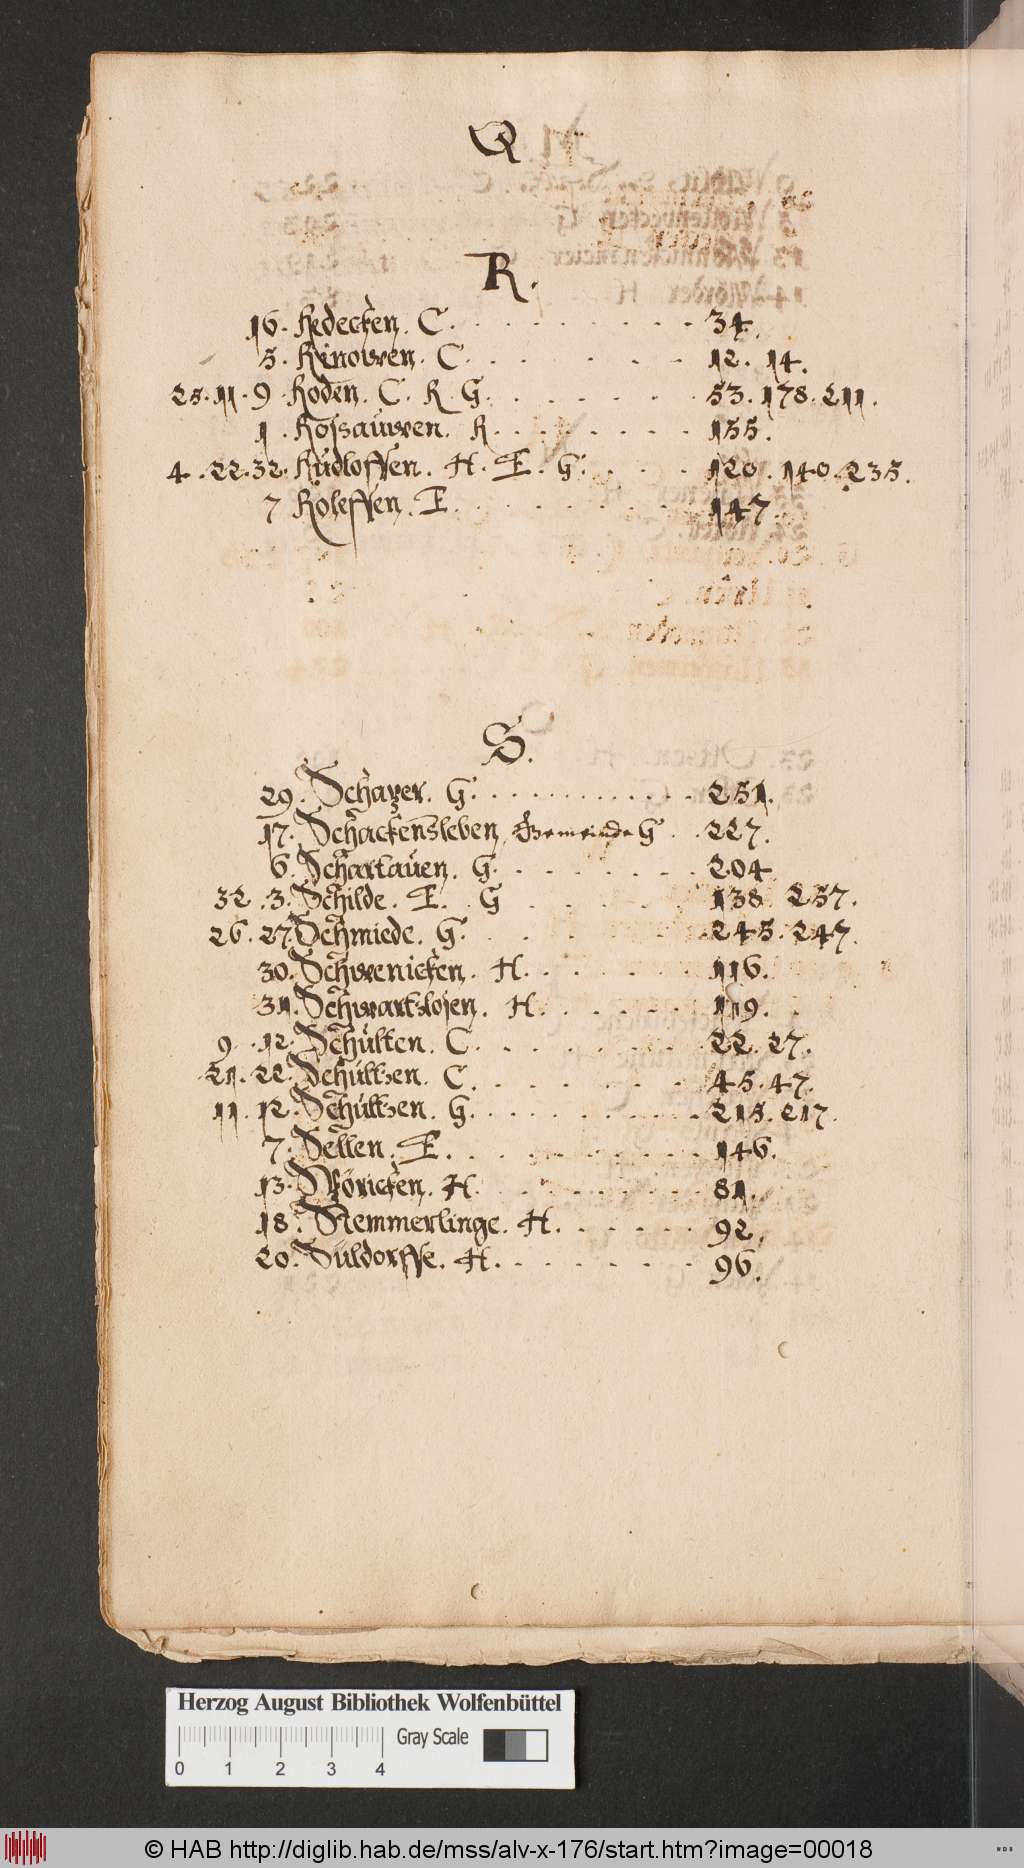 Q
R.
16. Redecken. C. . . . . . . . . . . 34.
5. Rinowen. C. . . . . . . 12. 14.
25. 11. 9. Roden. C. R. G. . . . . . . . 53. 178. 211.
1. Rossauwen. R. . . . . . . . 155.
4. 22. 32. Rudloffen. H. E. G. . . . . 120. 140. 235.
7 Roleffen. E. . . . . . . . . . 147.
S.
29. Scharer. G. . . . . . . . . . . . 251.
17. Schackensleben, Gemeinde G . . 227.
6. Schartauen. G. . . . . . . . . 204.
32. 3. Schilde. E. G . . . . . . 138. 257.
26. 27. Schmiede. G. . . . . . . . 245. 247.
30. Schwenicken. H. . . . . . . 116.
31. Schwartzlosen. H. . . . . . . 119.
9. 12. Schülten. C. . . . . . . . . 22. 27.
21. 22. Schultzen. C. . . . . . . . . 45. 47.
11. 12. Schultzen. G. . . . . . . . . . . 215. 217.
7. Sellen. E. . . . . . . . . . 146.
13. Sköricken. H. . . . . . . . . 81.
18. Stemmerlinge. H. . . . . . . 92.
20. Süldorffe. H. . . . . . . . 96.
Herzog August Bibliothek Wolfenbüttel
Gray Scale
0 1 2 3 4
© HAB http://diglib.hab.de/mss/alv-x-176/start.htm?image=00018